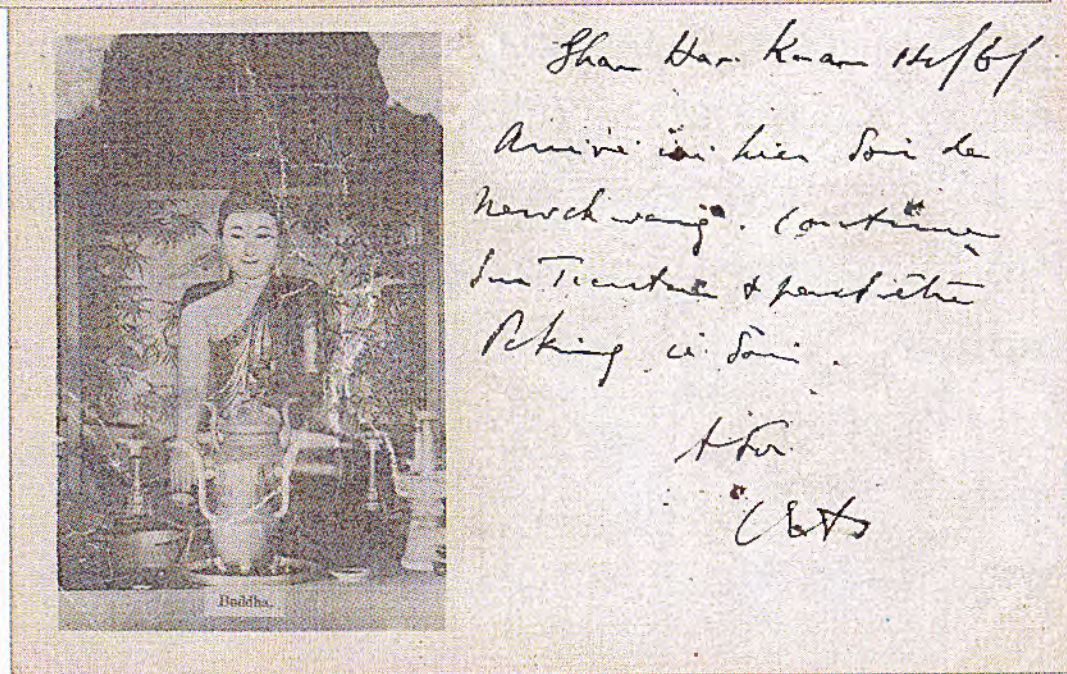 Shan Hai Kwan 14/6/
Arrivé ici hier soir de
Newchwang. Continue
sur Tientsin & peut être
Peking ce soir.
Buddha.